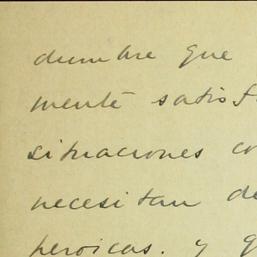 dumbre que
mente satisf
situaciones co
necesitan de
heroicas. y q